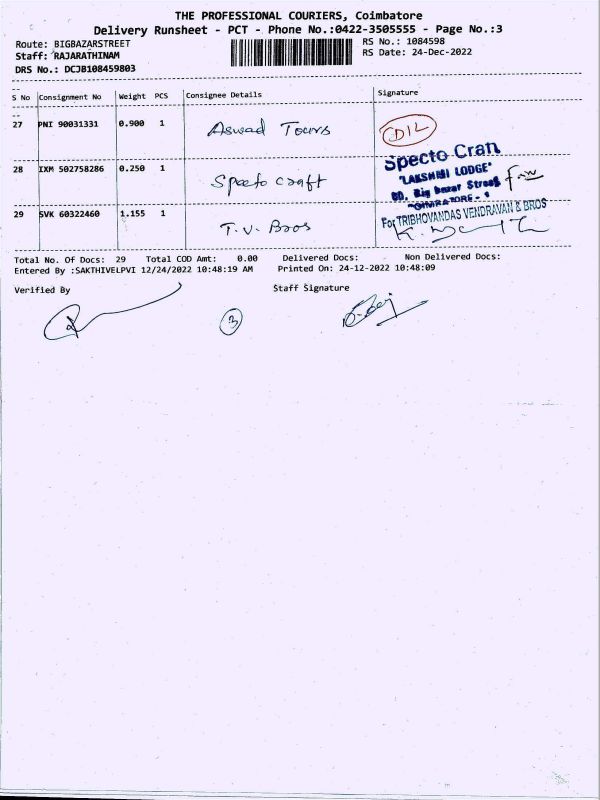 THE PROFESSIONAL COURIERS, Coimbatore
Delivery Runsheet - PCT - Phone No.:0422-3505555 - Page No.:3
Route: BIGBAZARSTREET RS No.: 1084598
Staff: RAJARATHINAM RS Date: 24-Dec-2022
DRS No.: DCJB108459803
S No Consignment No Weight PCS Consignee Details Signature
27 PNI 90031331 0.900 1 Aswad Tours
28 IXM 502758286 0.250 1 Specto craft
Specto Craft
"LAKSHMI LODGE"
80, Big bazar Street
COIMBATORE - 1
29 SVK 60322460 1.155 1 T.V. Bros
For TRIBHOVANDAS VENDRAVAN & BROS
Total No. Of Docs: 29 Total COD Amt: 0.00 Delivered Docs: Non Delivered Docs:
Entered By :SAKTHIVELPVI 12/24/2022 10:48:19 AM Printed On: 24-12-2022 10:48:09
Verified By Staff Signature
3